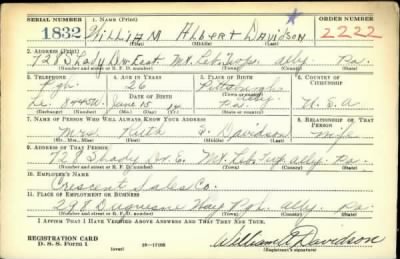 SERIAL NUMBER 1. NAME (Print) ORDER NUMBER
1832 William Albert Davidson 2222
(First) (Middle) (Last)
2. ADDRESS (Print)
728 Shady Dr. East Mt. Leb. Twp. Ally. Pa.
(Number and street or R. F. D. number) (Town) (County) (State)
3. TELEPHONE 4. AGE IN YEARS 5. PLACE OF BIRTH 6. COUNTRY OF CITIZENSHIP
Pgh. 26 Pittsburgh
DATE OF BIRTH (Town or county)
Le. June 15 Pa. U.S.A.
(Exchange) (Number) (Mo.) (Day) (Yr.) (State or country)
7. NAME OF PERSON WHO WILL ALWAYS KNOW YOUR ADDRESS 8. RELATIONSHIP OF THAT PERSON
Mrs. Ruth Davidson wife
(Mr., Mrs., Miss) (First) (Middle) (Last)
9. ADDRESS OF THAT PERSON
728 Shady Dr. E. Mt. Leb. Twp. Ally. Pa.
(Number and street or R. F. D. number) (Town) (County) (State)
10. EMPLOYER'S NAME
Crescent Sales Co.
11. PLACE OF EMPLOYMENT OR BUSINESS
298 Duquesne Way Pgh. Ally. Pa.
(Number and street or R. F. D. number) (Town) (County) (State)
I AFFIRM THAT I HAVE VERIFIED ABOVE ANSWERS AND THAT THEY ARE TRUE.
REGISTRATION CARD
D. S. S. FORM 1 (over) 16—17105 William A Davidson
(Registrant's signature)